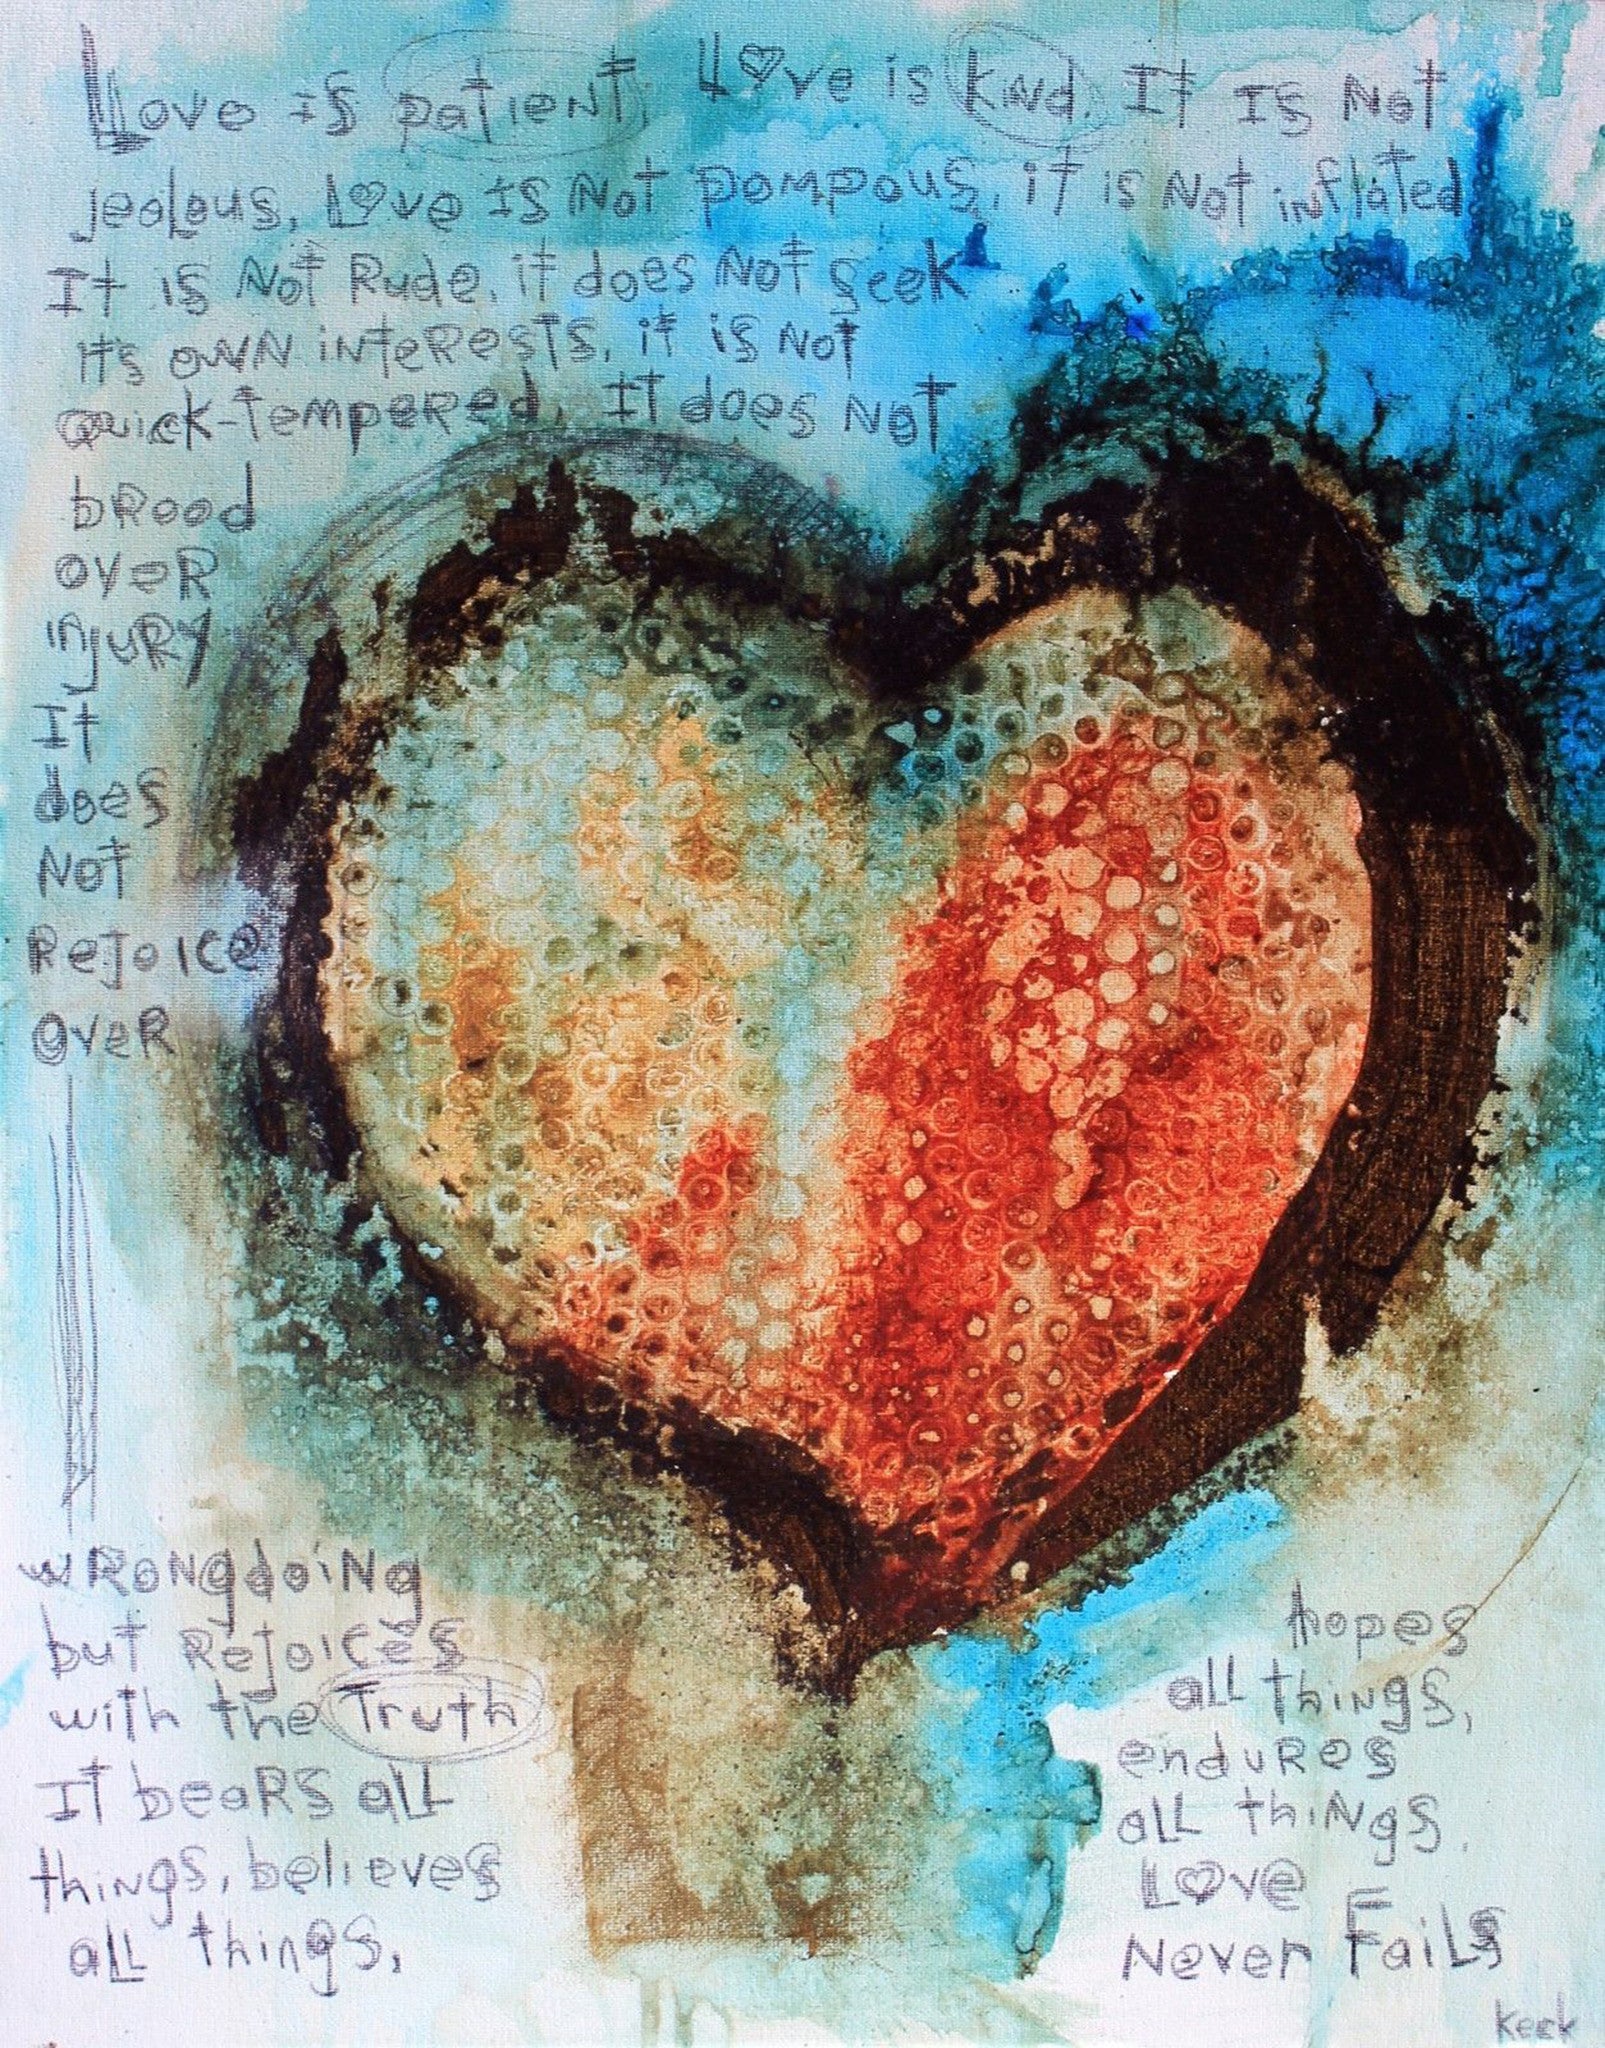 Love is patient, Love is kind. It Is Not
jealous, Love Is Not pompous, it is Not inflated
It is Not Rude, it does Not seek
It's own interests, it is Not
quick-tempered, It does Not
brood
over
injury
It
does
Not
Rejoice
over
wrongdoing
but Rejoices
with the Truth
It bears all
things, believes
all things,
hopes
all things,
endures
all things.
Love
Never Fails
Kerk